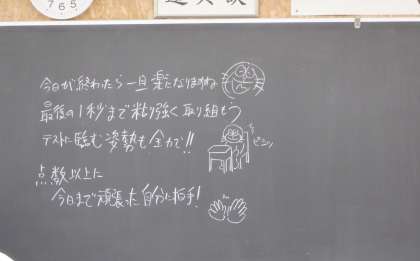 765
今日が終わったら一旦楽になりますね
最後の1秒まで粘り強く取り組もう
テストに臨む姿勢も全力で!!
ピシッ
点数以上に
今日まで頑張った自分に拍手!